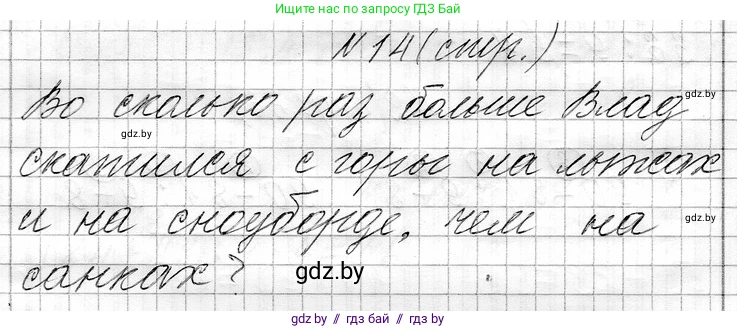 Ищите нас по запросу ГДЗ Бай
N 14 (стр.)
Во сколько раз больше Влад
gdz.by
gdz.by
скатился с горы на лыжах
и на сноуборде, чем на
gdz.by
санках?
gdz.by
gdz.by // гдз бай // gdz.by